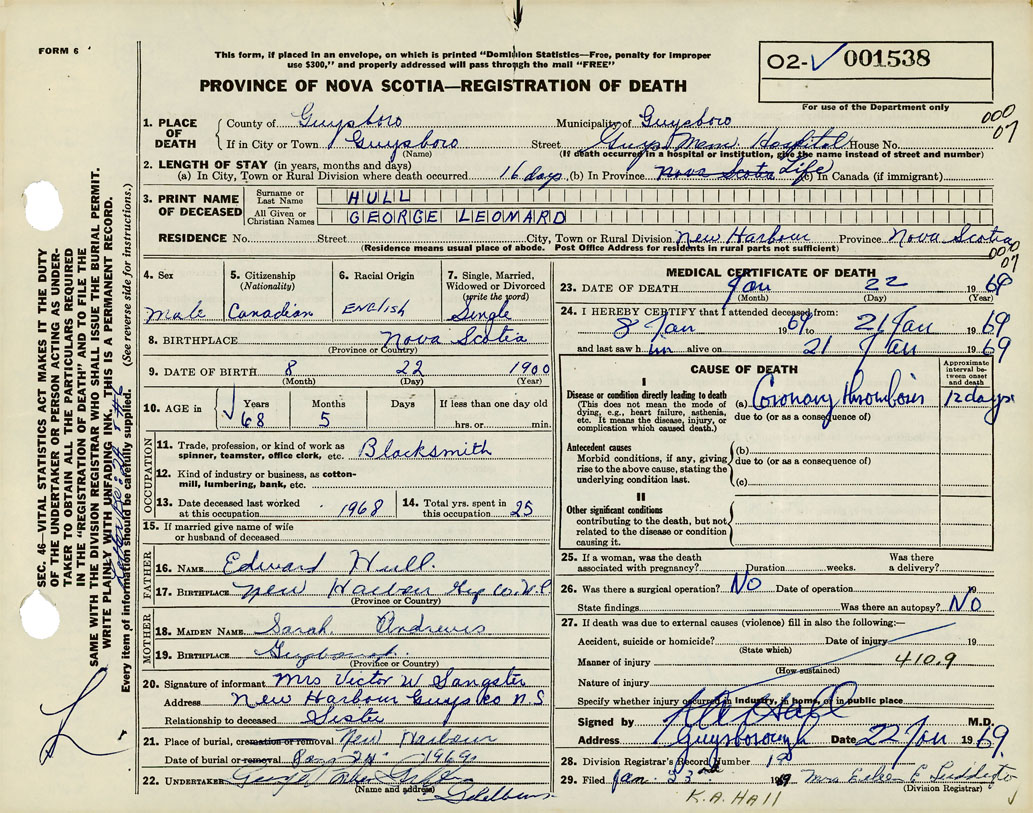 FORM 6
This form, if placed in an envelope, on which is printed "Dominion Statistics—Free, penalty for improper
use $300," and properly addressed will pass through the mail "FREE"
02-✓ 001538
For use of the Department only
PROVINCE OF NOVA SCOTIA—REGISTRATION OF DEATH
000
07
1. PLACE OF DEATH
County of Guysboro Municipality of Guysboro
If in City or Town Guysboro Street Guys Mem. Hospital House No.
(Name) (If death occurred in a hospital or institution, give the name instead of street and number)
2. LENGTH OF STAY (in years, months and days)
(a) In City, Town or Rural Division where death occurred 16 days (b) In Province Nova Scotia Life (c) In Canada (if immigrant)
3. PRINT NAME OF DECEASED
Surname or Last Name HULL
All Given or Christian Names GEORGE LEOMARD
RESIDENCE No. Street City, Town or Rural Division New Harbour Province Nova Scotia
(Residence means usual place of abode. Post Office Address for residents in rural parts not sufficient)
000
07
4. Sex
Male
5. Citizenship
(Nationality)
Canadian
6. Racial Origin
ENGLISH
7. Single, Married,
Widowed or Divorced
(write the word)
Single
8. BIRTHPLACE Nova Scotia
(Province or Country)
9. DATE OF BIRTH 8 22 1900
(Month) (Day) (Year)
10. AGE in
Years Months Days If less than one day old
68 5 hrs. or min.
OCCUPATION
11. Trade, profession, or kind of work as
spinner, teamster, office clerk, etc. Blacksmith
12. Kind of industry or business, as cotton-
mill, lumbering, bank, etc.
13. Date deceased last worked
at this occupation 1968
14. Total yrs. spent in
this occupation 25
15. If married give name of wife
or husband of deceased
FATHER
16. NAME Edward Hull.
17. BIRTHPLACE New Harbour
(Province or Country)
MOTHER
18. MAIDEN NAME Sarah Andrews
19. BIRTHPLACE Guysborough.
(Province or Country)
20. Signature of informant Mrs Victor W Sangster
Address New Harbour Guys Co N.S
Relationship to deceased Sister
21. Place of burial, cremation or removal New Harbour
Date of burial or removal 24 1969
22. UNDERTAKER George
(Name and address)
MEDICAL CERTIFICATE OF DEATH
23. DATE OF DEATH Jan 22 1969
(Month) (Day) (Year)
24. I HEREBY CERTIFY that I attended deceased from:
8 Jan 1969 to 21 Jan 1969
and last saw him alive on 21 Jan 1969
CAUSE OF DEATH
Approximate
interval be-
tween onset
and death
I
Disease or condition directly leading to death
(This does not mean the mode of
dying, e.g., heart failure, asthenia,
etc. It means the disease, injury, or
complication which caused death.)
(a) Coronary thrombosis 12 days
due to (or as a consequence of)
Antecedent causes
Morbid conditions, if any, giving
rise to the above cause, stating the
underlying condition last.
(b)
due to (or as a consequence of)
(c)
II
Other significant conditions
contributing to the death, but not
related to the disease or condition
causing it.
25. If a woman, was the death Was there
associated with pregnancy? Duration weeks. a delivery?
26. Was there a surgical operation? NO Date of operation 19
State findings Was there an autopsy? NO
27. If death was due to external causes (violence) fill in also the following:—
Accident, suicide or homicide? Date of injury 19
(State which)
Manner of injury 410.9
(How sustained)
Nature of injury
Specify whether injury occurred in industry, in home, or in public place
Signed by M.D.
Address Guysborough Date 22 Jan 1969.
28. Division Registrar's Record Number 19
29. Filed Jan. 23rd 1969
(Division Registrar)
K.A. Hall
SEC. 46—VITAL STATISTICS ACT MAKES IT THE DUTY
OF THE UNDERTAKER OR PERSON ACTING AS UNDER-
TAKER TO OBTAIN ALL THE PARTICULARS REQUIRED
IN THE "REGISTRATION OF DEATH" AND TO FILE THE
SAME WITH THE DIVISION REGISTRAR WHO SHALL ISSUE THE BURIAL PERMIT.
WRITE PLAINLY WITH UNFADING INK. THIS IS A PERMANENT RECORD.
Every item of information should be carefully supplied. (See reverse side for instructions.)